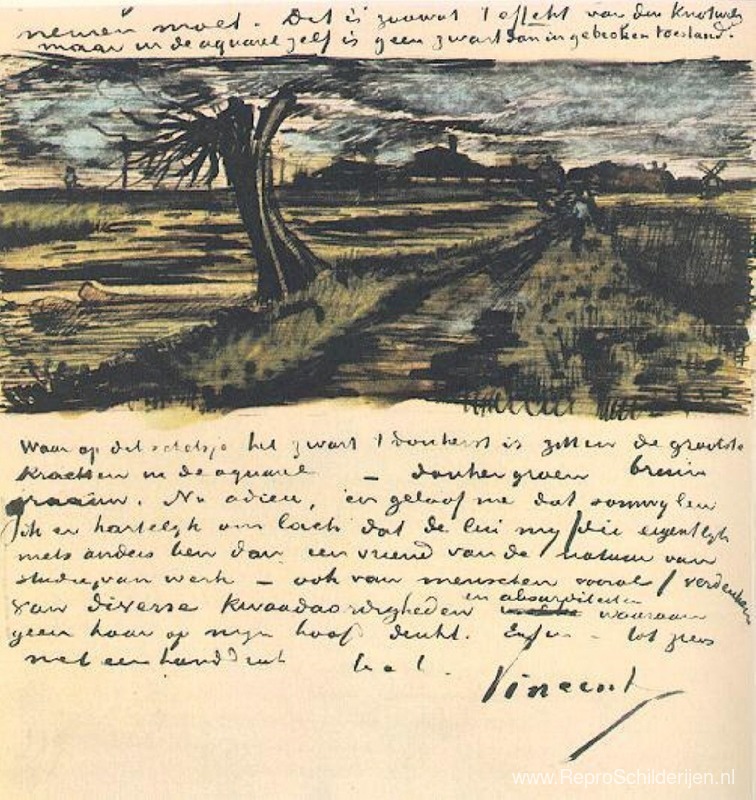 nemen moet. Dit is zoowat 't effekt van den Knotwilg
maar in de aquarel zelf is geen zwart dan in gebroken toestand.
Waar op dit schetsje het zwart 't donkerst is zitten de grootste
krachten in de aquarel — donkergroen bruin
graauw. Nu adieu, en geloof me dat somwylen
ik er hartelyk om lach dat de lui my /die eigentlyk
niets anders ben dan een vriend van de natuur van
studie, van werk – ook van menschen vooral / verdenken
van diverse kwaadaardigheden en absurditeiten waaraan
geen haar op myn hoofd denkt. Enfin – tot ziens
met een handdruk
Vincent
www.ReproSchilderijen.nl